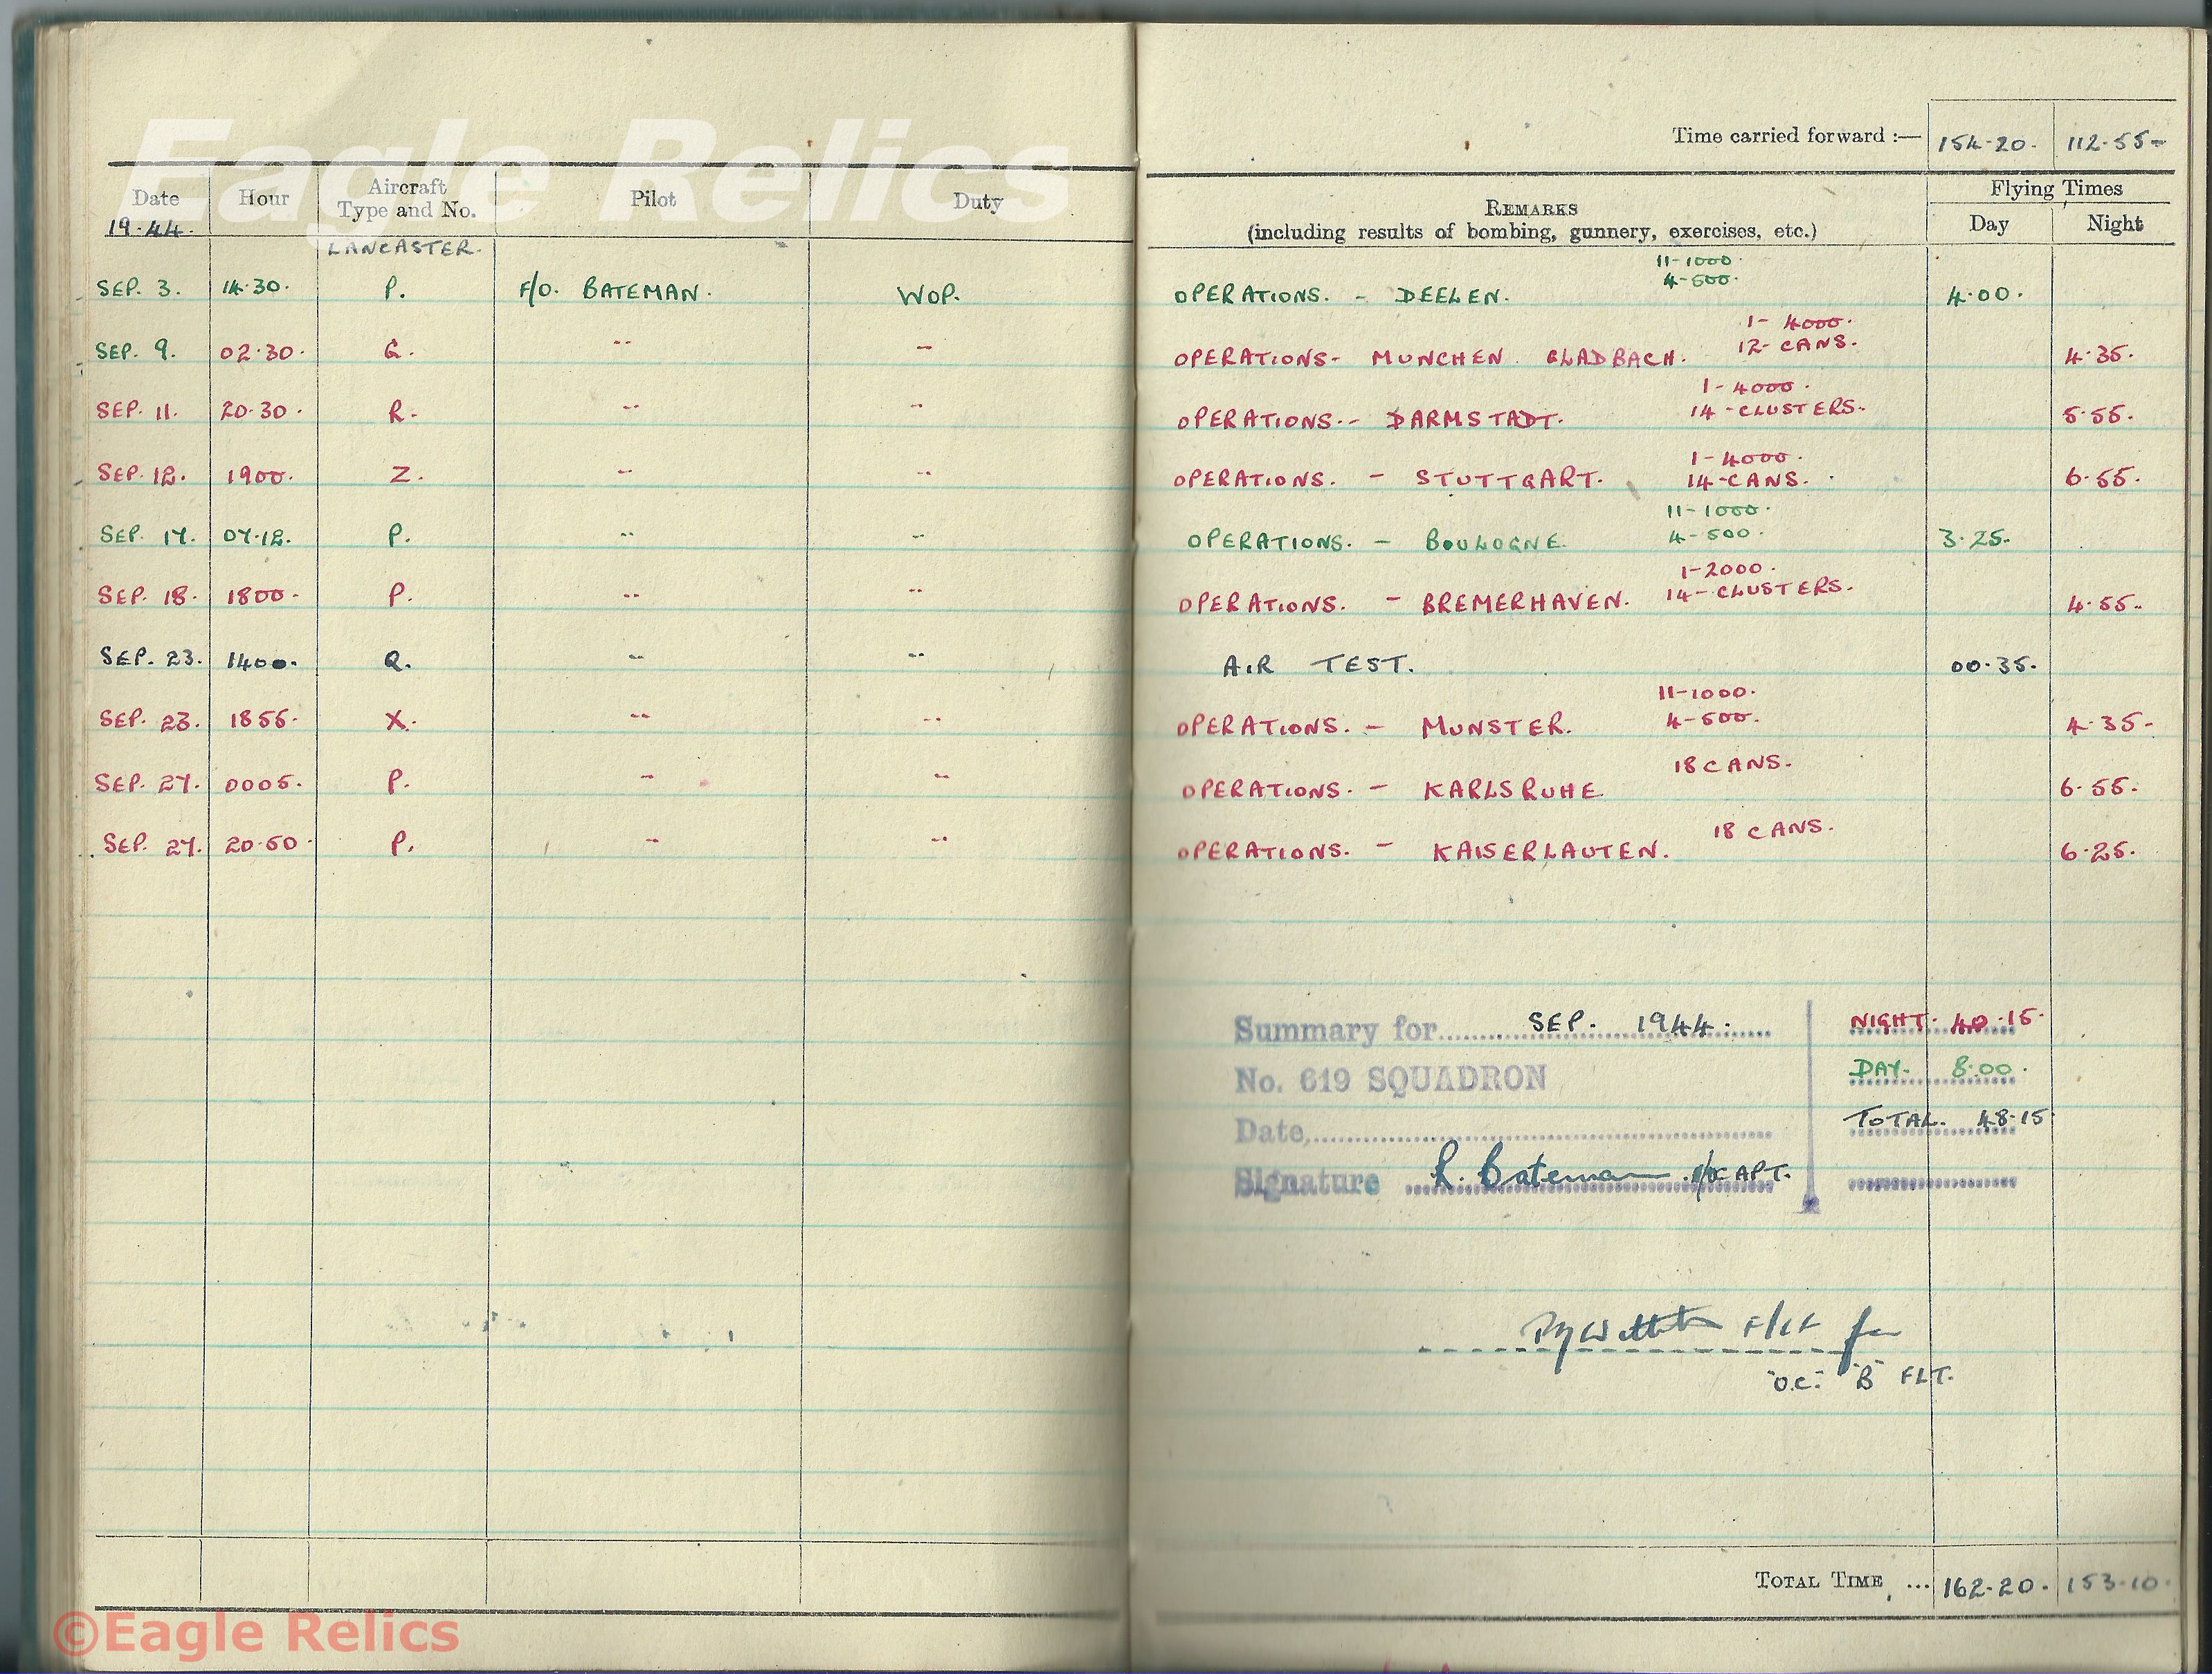 Eagle Relics
Time carried forward :— 154·20· 112·55-
Date Hour Aircraft Type and No. Pilot Duty REMARKS (including results of bombing, gunnery, exercises, etc.) Flying Times Day Night
19·44·
LANCASTER·
SEP. 3. 14·30· P. F/O. BATEMAN. WOP. OPERATIONS. - DEELEN. 11-1000· 4-500· 4·00·
SEP. 9. 02·30· G. -- -- OPERATIONS- MUNCHEN GLADBACH. 1- 4000· 12- CANS· 4·35·
SEP. 11. 20·30· R. -- -- OPERATIONS.- DARMSTADT. 1- 4000· 14-CLUSTERS· 5·55·
SEP. 12. 1900· Z. -- -- OPERATIONS. - STUTTGART. 1-4000· 14-CANS. 6·55·
SEP. 17. 07·12. P. -- -- OPERATIONS. - BOULOGNE. 11-1000· 4-500· 3·25·
SEP. 18. 1800· P. -- -- OPERATIONS. - BREMERHAVEN. 1-2000· 14-CLUSTERS. 4·55·
SEP. 23. 1400. Q. -- -- AIR TEST. 00·35·
SEP. 23. 1855· X. -- -- OPERATIONS. - MUNSTER. 11-1000· 4-500· 4·35-
SEP. 27. 0005. P. -- -- OPERATIONS. - KARLSRUHE 18 CANS. 6·55·
SEP. 27. 20·50· P. -- -- OPERATIONS. - KAISERLAUTEN. 18 CANS. 6·25·
Summary for SEP. 1944. NIGHT· 40·15·
No. 619 SQUADRON DAY. 8·00·
Date TOTAL. 48·15·
Signature R. Bateman F/O CAPT.
F/Lt for
"O.C." "B" FLT.
TOTAL TIME ... 162·20· 153·10·
©Eagle Relics